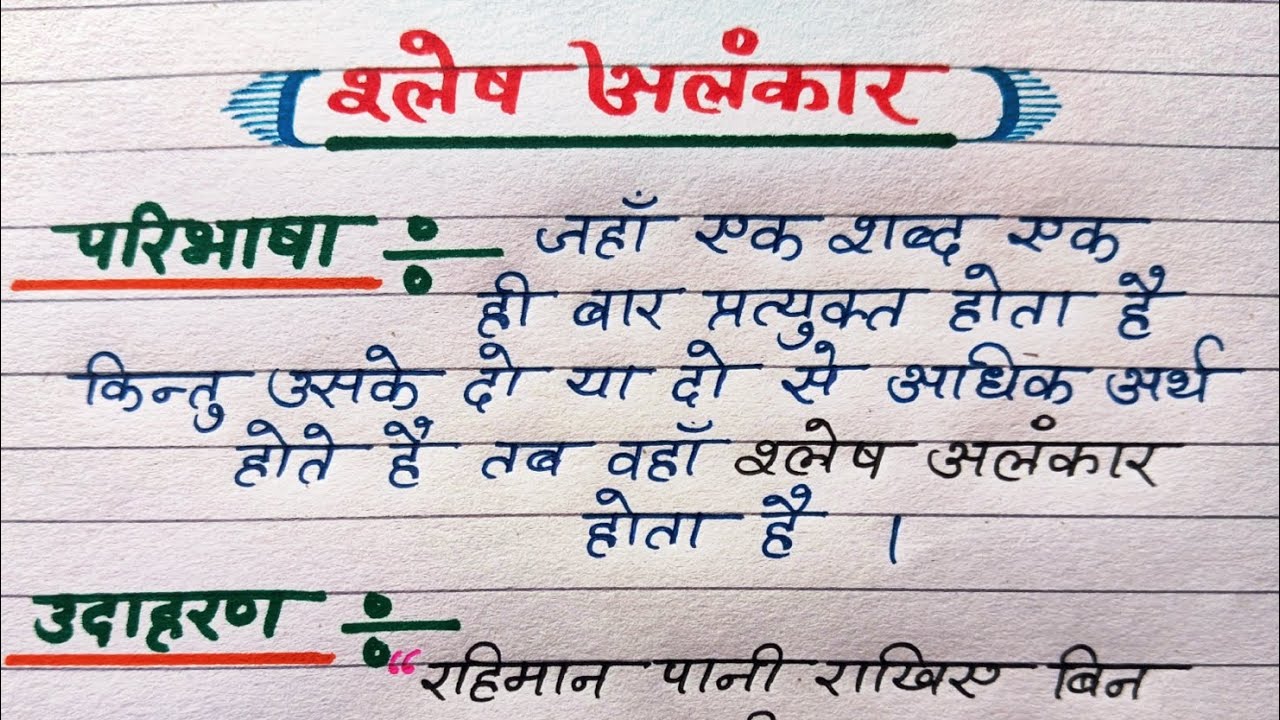 श्लेष अलंकार
परिभाषा ÷ जहाँ एक शब्द एक
ही बार प्रत्युक्त होता है
किन्तु उसके दो या दो से अधिक अर्थ
होते हैं तब वहाँ श्लेष अलंकार
होता है ।
उदाहरण ÷
“रहिमान पानी राखिए बिन